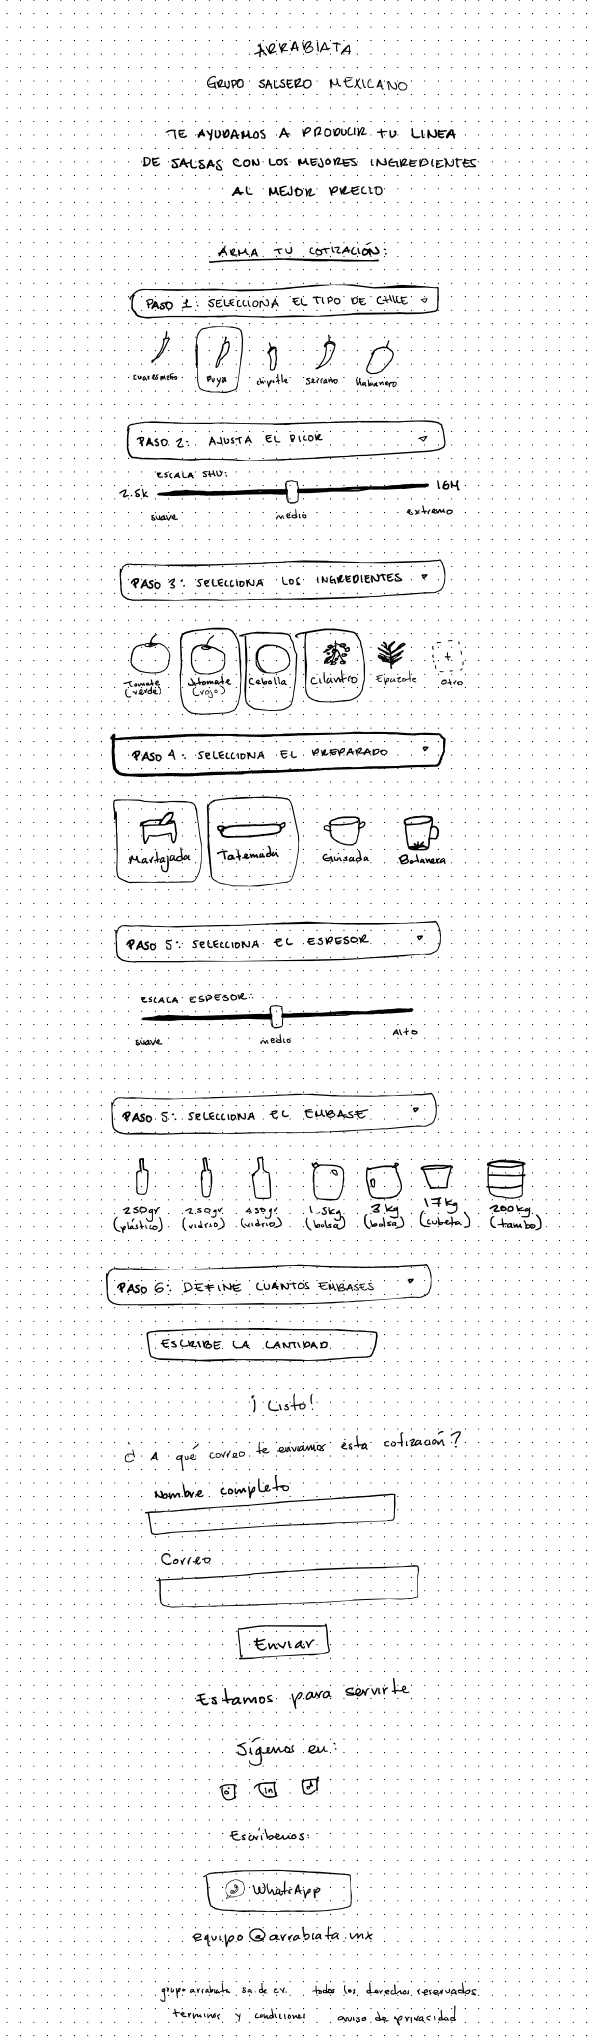 ARRABIATA
GRUPO SALSERO MEXICANO
TE AYUDAMOS A PRODUCIR TU LINEA
DE SALSAS CON LOS MEJORES INGREDIENTES
AL MEJOR PRECIO
ARMA TU COTIZACIÓN:
PASO 1: SELECCIONA EL TIPO DE CHILE
cuaresmeño Puya chipotle serrano Habanero
PASO 2: AJUSTA EL PICOR
ESCALA SHU:
2.5k 16M
suave medio extremo
PASO 3: SELECCIONA LOS INGREDIENTES
+
Tomate Jitomate Cebolla Cilantro Epazote otro
(verde) (rojo)
PASO 4: SELECCIONA EL PREPARADO
Martajada Tatemada Guisada Botanera
PASO 5: SELECCIONA EL ESPESOR
ESCALA ESPESOR:
suave medio Alto
PASO 5: SELECCIONA EL EMBASE
250gr 250gr 450gr 1.5kg 3kg 17kg 200kg
(plástico) (vidrio) (vidrio) (bolsa) (bolsa) (cubeta) (tambo)
PASO 6: DEFINE CUANTOS EMBASES
ESCRIBE LA CANTIDAD
¡Listo!
¿A qué correo te enviamos esta cotización?
Nombre completo
Correo
Enviar
Estamos para servirte
Sígenos en:
in
Escríbenos:
WhatsApp
equipo@arrabiata.mx
grupo arrabiata s.a. de c.v. todos los derechos reservados
terminos y condiciones aviso de privacidad